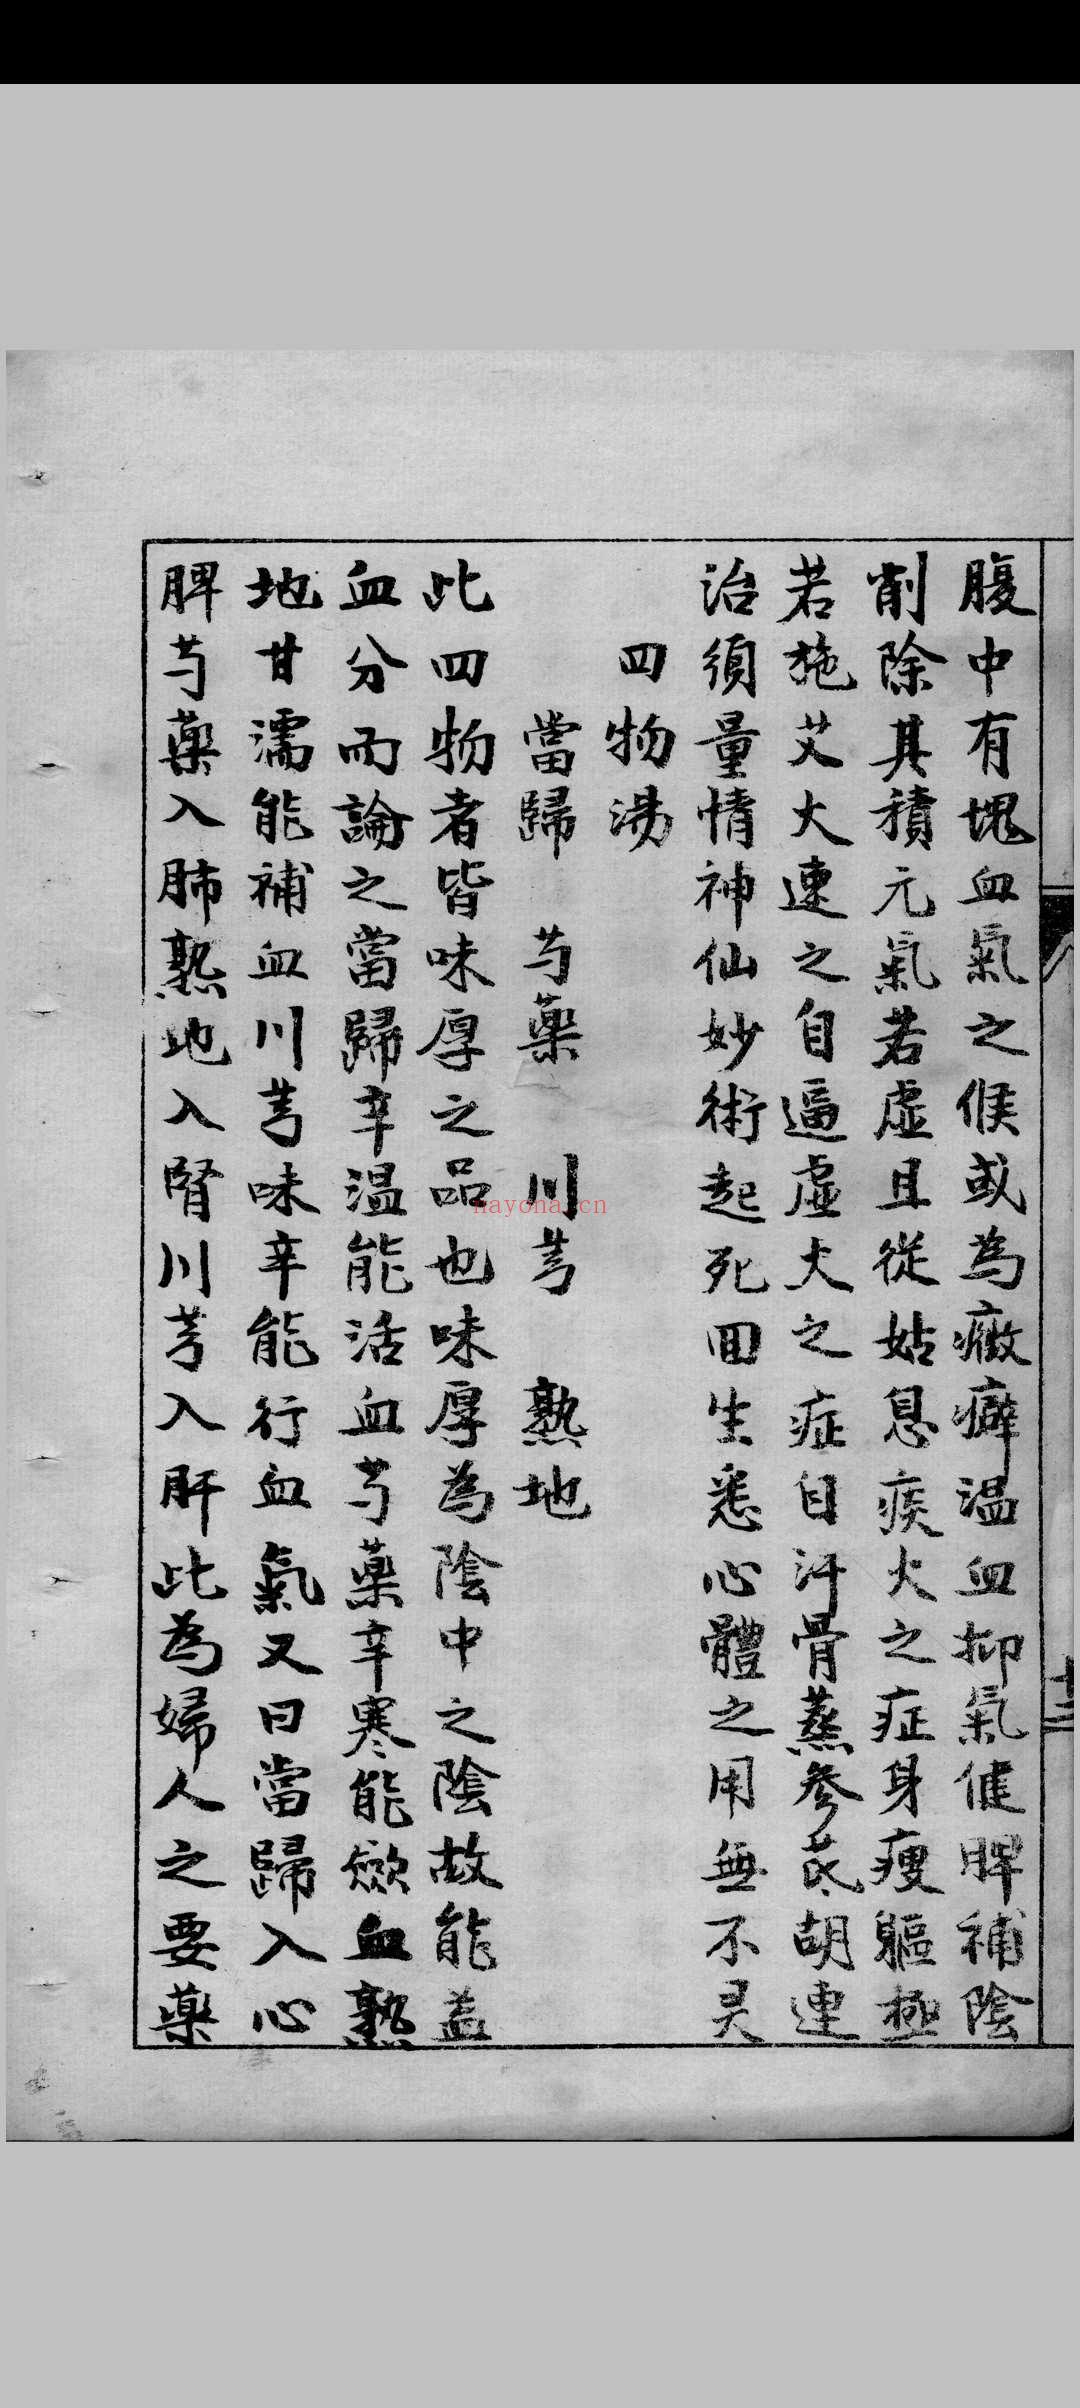 腹中有塊血氣之候或為癥癖温血抑氣健脾補陰
削除其積元氣若虛且從姑息痰火之症身瘦軀極
若施艾火速之自逼虛火之症自汗骨蒸參芪胡連
治須量情神仙妙術起死回生悉心體之用無不灵
四物湯
當歸 芍藥 川芎 熟地
此四物者皆味厚之品也味厚為陰中之陰故能益
血分而論之當歸辛温能活血芍藥辛寒能斂血熟
地甘濡能補血川芎味辛能行血氣又曰當歸入心
脾芍藥入肺熟地入腎川芎入肝此為婦人之要藥
十三
nayona.cn